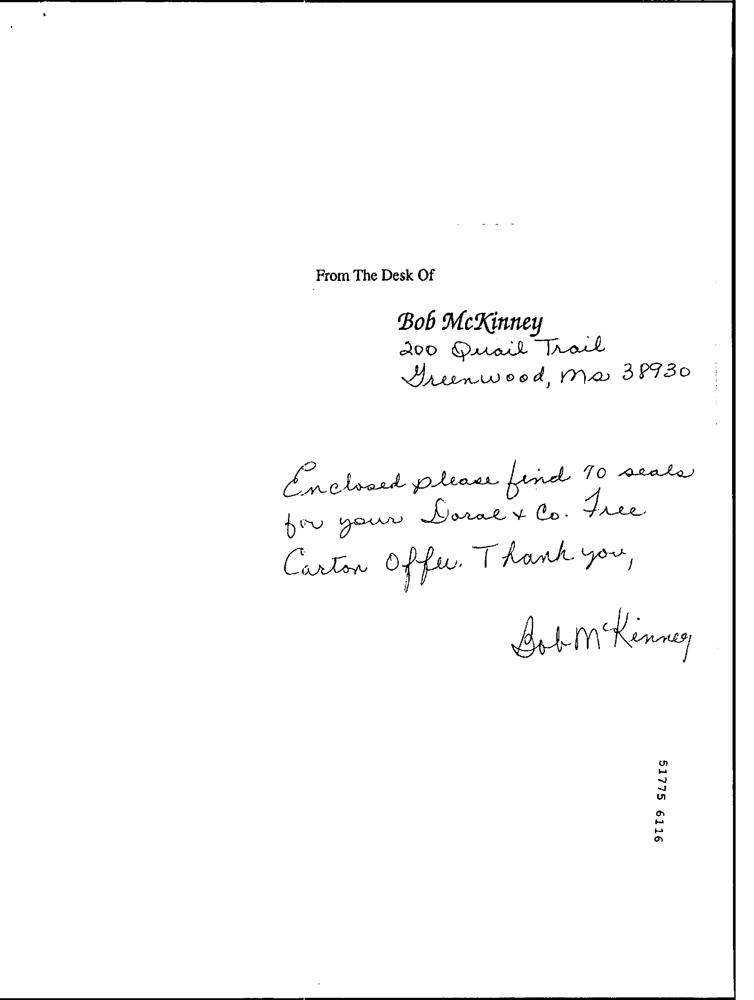 From The Desk Of
Bob McKinney
200 Quail Trail
Greenwood, Ms 38930
Enclosed please find 70 seals
for your Doral & Co. Free
Carton Offer. Thank you,
Bob McKinney
51775 6116